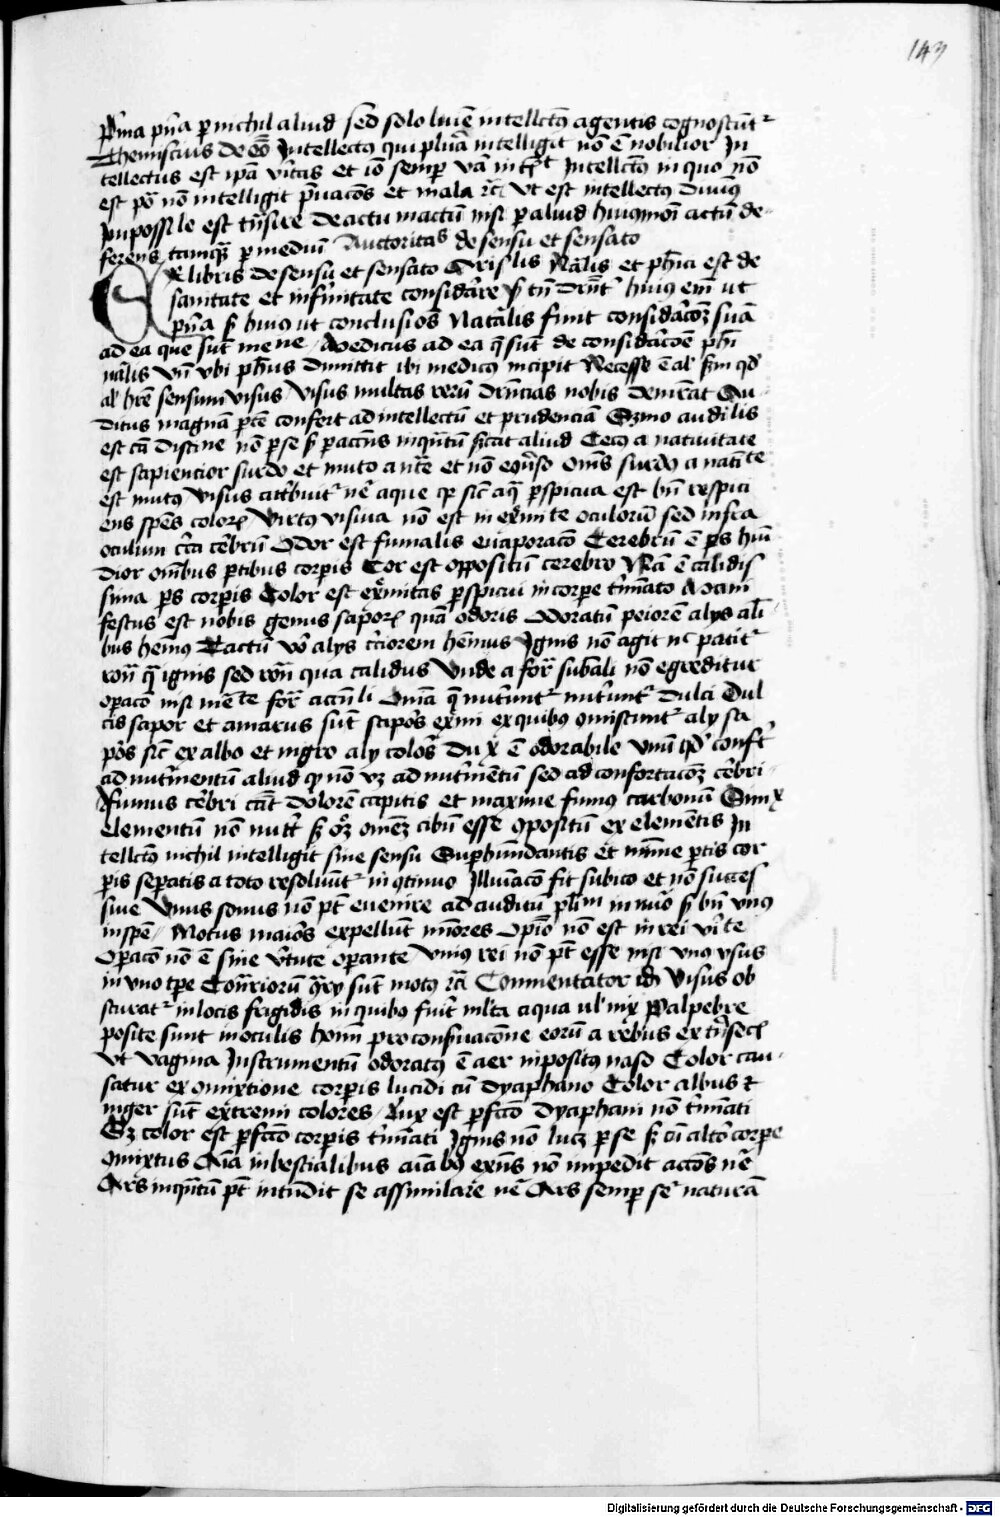 143
Pͥma pñcͥa ꝑ nichil aliud sed solo luīe intellectꝰ agentis cognoscūtᷣ
Themistius de eōdē Intellectus qui plura intelligit nō ē nobilior In
tellectus est ipā vͥtas et iō semꝑ vā intᷣt Intellectꝰ in quo nō
est po nō intelligit pͥuacōes et mala rc̄ vt est intellectꝰ diuinꝰ
Impossile est trͣnsire de actu in actū nisi ꝑ aliud huiꝰmōi actū de
ferens tamqᷓ ꝑ mediū Auctoritas de sensu et sensato
Ex libris de sensu et sensato Aris lis Nālis et pħici est de
sanitate et infirmitate considare sꝫ tn̄ drn̄t huius em̄ vt
pͥncͥa sꝫ huius vt conclusiōes Naturalis finit consideracōꝫ suā
ad ea que sūt mene Medicus ad ea q̄ sūt de consideracōe pħi
nālis vn̄ vbi pħus dimittit ibi medicꝰ incipit Necesse ē aīal sm̄ qđ
aīal hr̄e sensum visus Visus multas rerū drn̄cias nobis demr̄at Au
ditus magnā ꝑtē confert ad intellectū et prudenciā Sermo audilis
est cā discipline nō ꝑ se sꝫ ꝑ accn̄s inqn̄tū sīcat aliud Cecꝰ a natiuitate
est sapiencior surdo et muto a nr̄e et nō econūso Om̄s surdꝰ a natīte
est mutꝰ Visus attͥbuitᷣ ne aque qꝫ sic aqᷓ ꝑspicua est bn̄ respici
ens spēs colorꝝ Virtꝰ visiua nō est in extͥmitate oculorū sed infra
oculum circa cerebrū Odor est fumalis euaporacō Cerebrū ē ꝑs hūi
dior om̄ibus ꝑtibus corꝑis Cor est oppositū cerebro Nā ē calidis
sima ꝑs corꝑis Color est extͥmitas ꝑspicui in corꝑe tͥminato Mani
festus est nobis genus saporꝝ quā odoris Odoratū peiorē alys ali
bus hemꝰ Tactū vͦ alys cͥciorem hemus Ignis nō agit nec patitᷣ
rōn̄ qᷓ ignis sed rōn̄ qua calidus Unde a forᷓ subali nō egreditur
oꝑacō nisi mediāte forᷓ accn̄li Oīa q̄ nutͥuntᷣ nutͥuntᷣ dulci Dul
cis sapor et amarus sūt sapores extͥmi ex quibꝰ ꝯmiscuntᷣ aly sa
pores sic ex albo et nigro aly colores Dux ē odorabile vnū qđ confert
ad nutͥmentū aliud qꝫ nō vꝫ ad nutͥmentū sed ad confortacōꝫ cerebri
Fumus cerebri cāt dolorē capitis et maxime fumꝰ carbonū Simx
elementū nō nutͥt sꝫ oꝫ omnē cibū esse ꝯpositū ex elementis In
tellectꝰ nichil intelligit sine sensu Superhabundantis et nimie ꝑtis cor
ꝑis seperatis a toto resoluūtᷣ in ꝯtinuo Illuīacō fit subito et nō succes
siue Unus sonus nō pt̄ euenire ad auditū plīm in nūo sꝫ bn̄ vnus
in spē Motus maiores expellūt minores Opinio nō est in rei vͥtate
Oꝑacō nō ē sine vͥtute oꝑante Vnius rei nō pt̄ esse nisi vnus vsus
in vno tꝑe Contͣriorū ꝯtͣry sūt motꝰ rc̄ Commentator ibi Visus ob
scuratᷣ in locis frigidis in quibꝰ fuit mlta aqua vl nix Palpebre
posite sunt in oculis hoīm pro conseruacōne eorū a rebus extrinsecis
vt vagina Instrumentū odoratꝰ ē aer inpositꝰ naso Color cau
satur ex ꝯmixtione corꝑis lucidi cū dyaphano Color albus et
niger sūt extremi colores Lux est ꝑfectio dyaphani nō tͥminati
Sꝫ color est ꝑfectio corꝑis tͥminati Ignis nō lucꝫ ꝑ se sꝫ cū altͥo corꝑe
ꝯmixtus Aīa in bestialibus aīabꝰ exīns nō impedit accōes nē
Ars inqn̄tū pt̄ intendit se assimilare ne Ars semꝑ seqͥ naturā
Digitalisierung gefördert durch die Deutsche Forschungsgemeinschaft - DFG